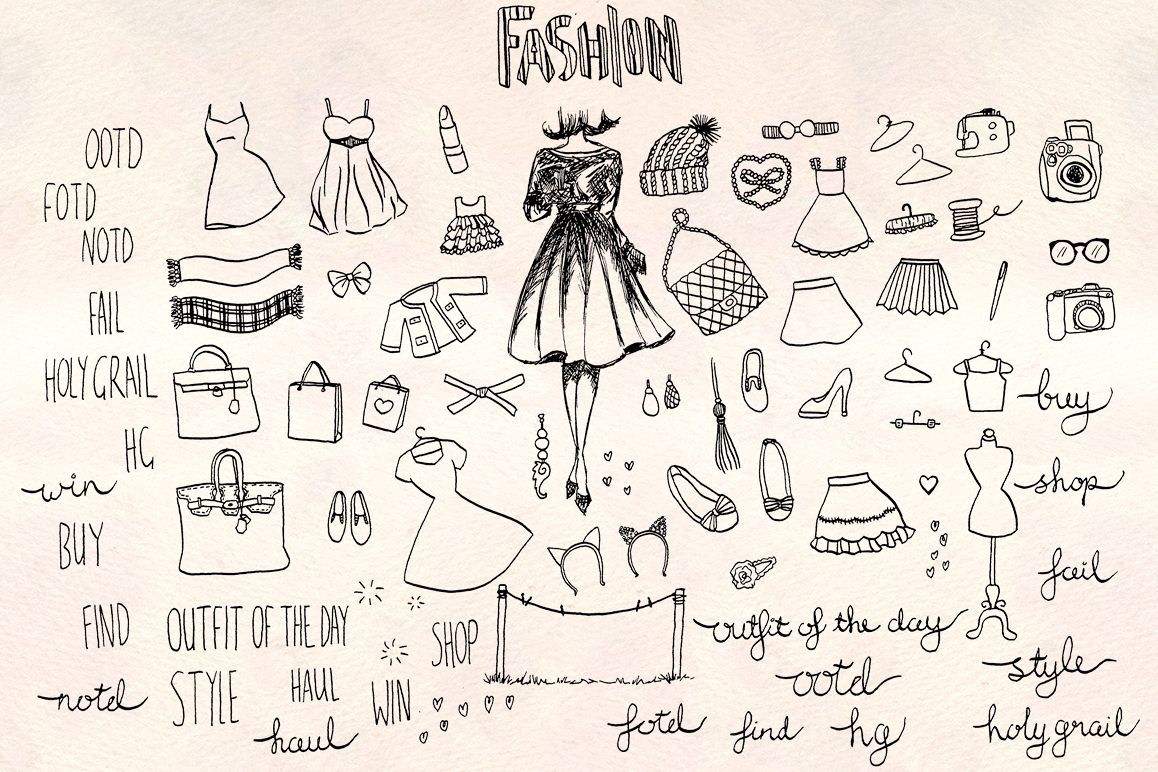 FASHION
OOTD
FOTD
NOTD
FAIL
HOLY GRAIL
HG
win
BUY
FIND
notd
OUTFIT OF THE DAY
STYLE
HAUL
haul
WIN
SHOP
buy
shop
fail
outfit of the day
ootd
style
fotd
find
hg
holy grail